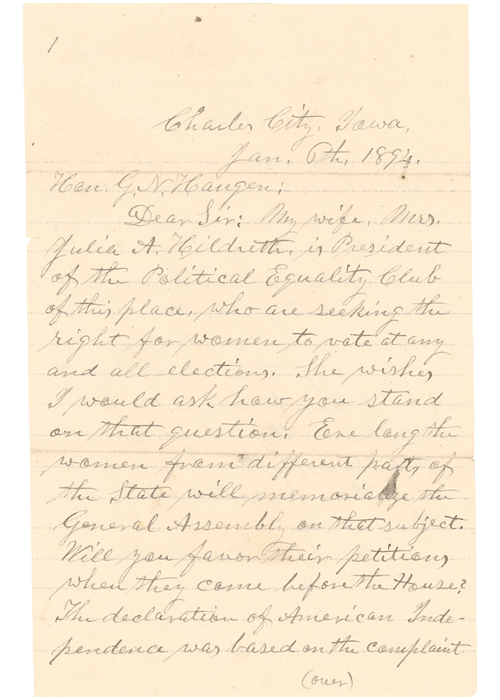 1
Charles City, Iowa,
Jan. 6th, 1894.
Hon. G. N. Haugen;
Dear Sir: My wife, Mrs.
Julia A. Hildreth, is President
of the Political Equality Club
of this place, who are seeking the
right for women to vote at any
and all elections. She wishes
I would ask how you stand
on that question. Ere long the
women from different parts of
the State will memorialize the
General Assembly on that subject.
Will you favor their petitions
when they come before the House?
The declaration of American Inde-
pendence was based on the complaint
(over)